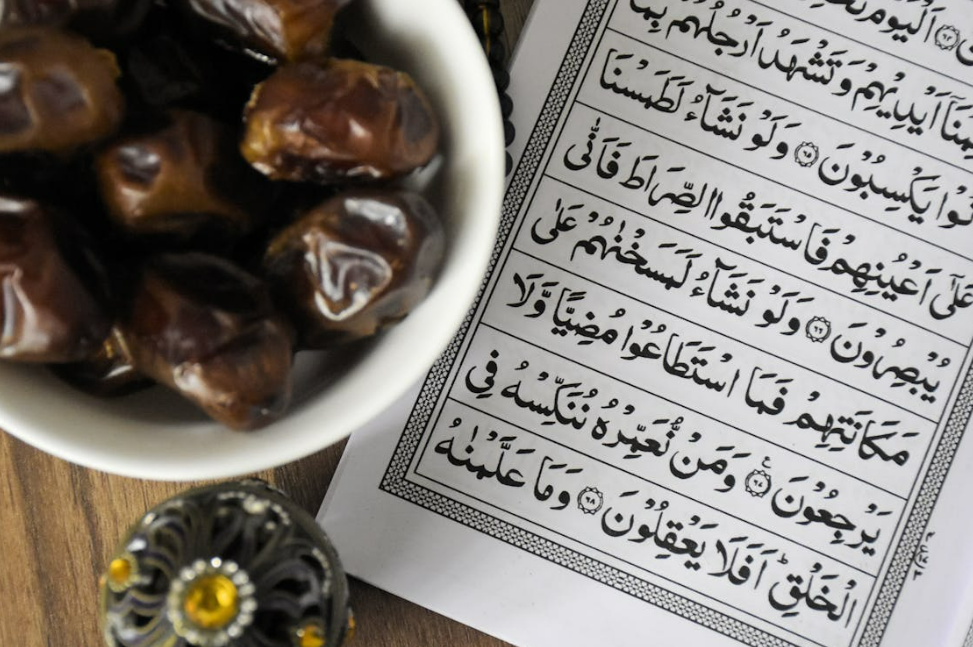 ن ﴿٦٤﴾ اَلْيَوْمَ
مُنَآ اَيْدِيْهِمْ وَتَشْهَدُ اَرْجُلُهُمْ بِمَا
نُوْا يَكْسِبُوْنَ ﴿٦٥﴾ وَلَوْ نَشَآءُ لَطَمَسْنَا
عَلٰٓى اَعْيُنِهِمْ فَاسْتَبَقُوا الصِّرَاطَ فَاَنّٰى
يُبْصِرُوْنَ ﴿٦٦﴾ وَلَوْ نَشَآءُ لَمَسَخْنٰهُمْ عَلٰى
مَكَانَتِهِمْ فَمَا اسْتَطَاعُوْا مُضِيًّا وَّلَا
يَرْجِعُوْنَ ﴿٦٧﴾ وَمَنْ نُّعَمِّرْهُ نُنَكِّسْهُ فِى
الْخَلْقِ ؕ اَفَلَا يَعْقِلُوْنَ ﴿٦٨﴾ وَمَا عَلَّمْنٰهُ